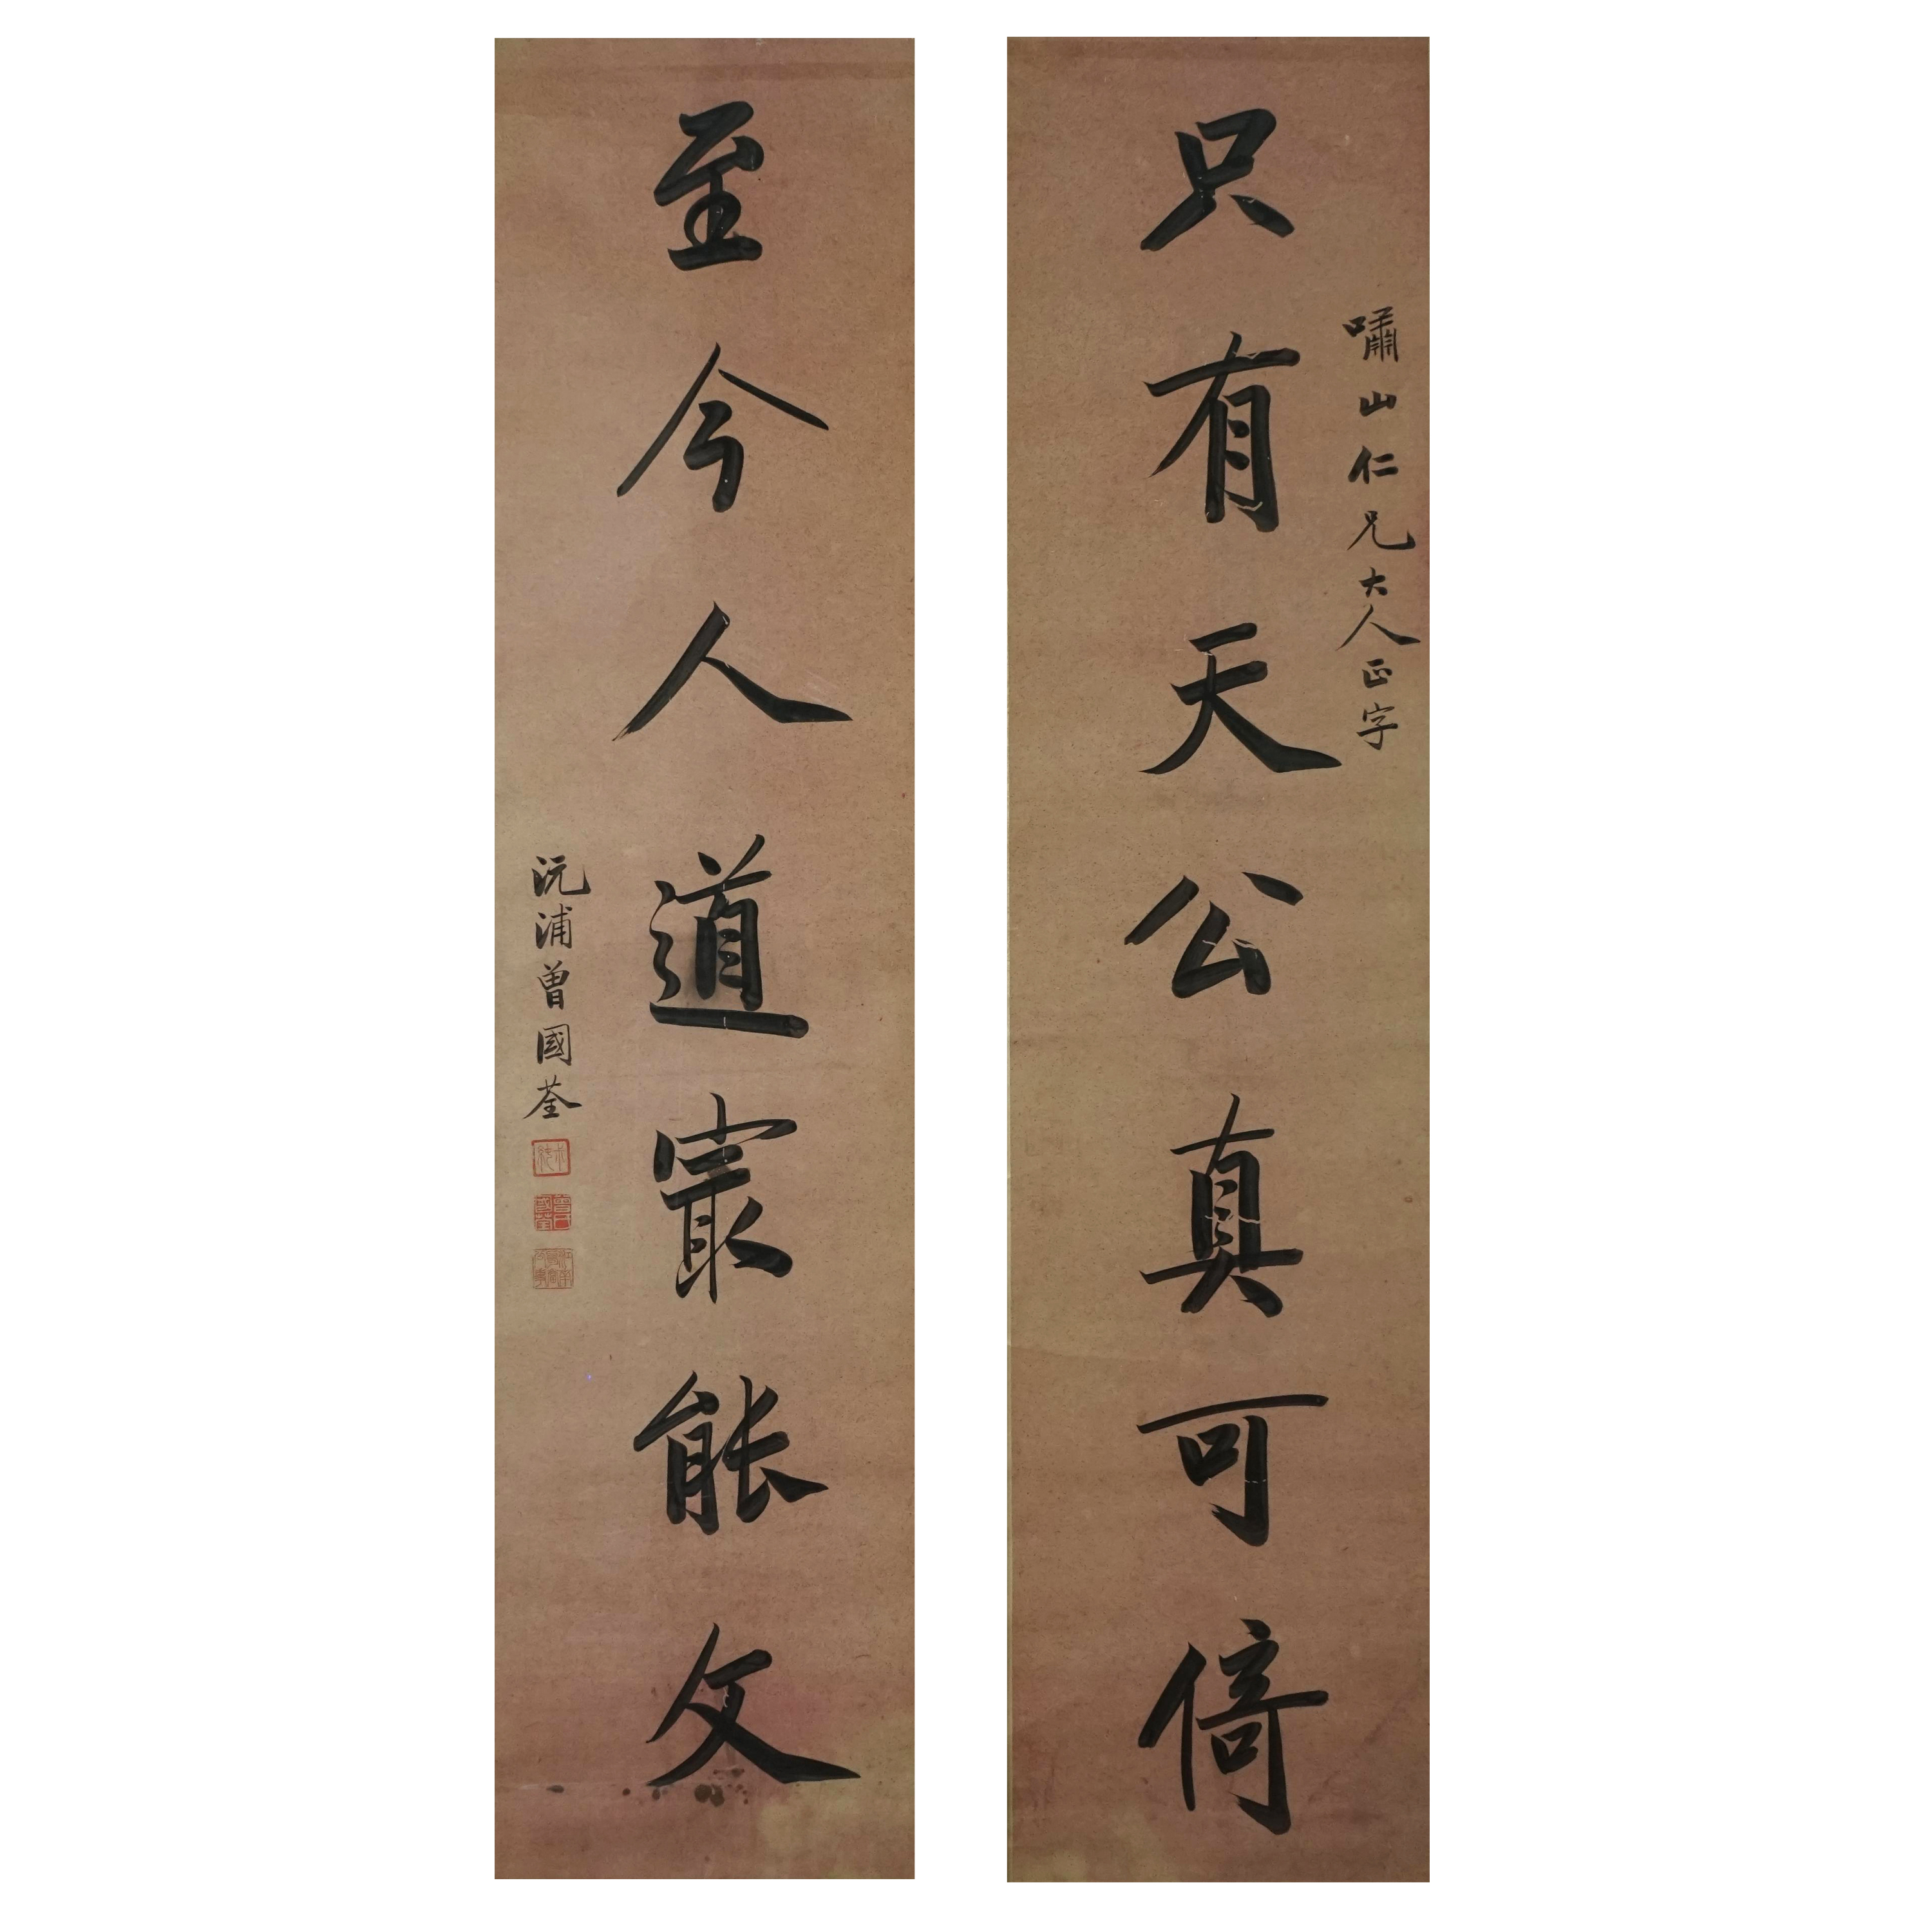 只有天公真可倚
嘯山仁兄大人正字
至今人道寂能文
沅浦曾國荃
曾國荃